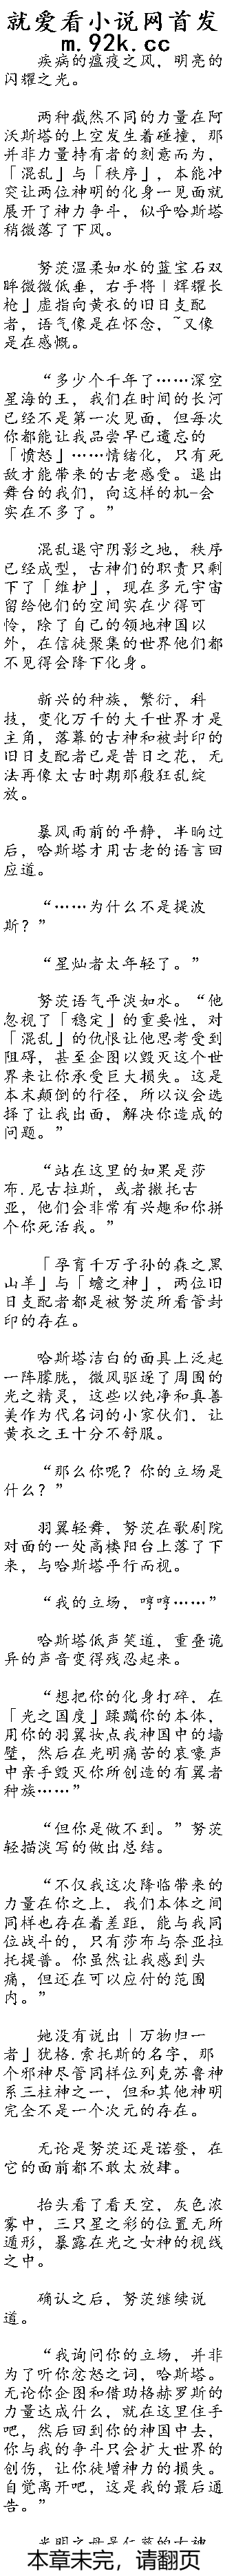 就爱看小说网首发
m.92k.cc
疾病的瘟疫之风，明亮的
闪耀之光。
两种截然不同的力量在阿
沃斯塔的上空发生着碰撞，那
并非力量持有者的刻意而为，
「混乱」与「秩序」，本能冲
突让两位神明的化身一见面就
展开了神力争斗，似乎哈斯塔
稍微落了下风。
努茨温柔如水的蓝宝石双
眸微微低垂，右手将「辉耀长
枪」虚指向黄衣的旧日支配
者，语气像是在怀念，~又像
是在感慨。
“多少个千年了……深空
星海的王，我们在时间的长河
已经不是第一次见面，但每次
你都能让我品尝早已遗忘的
「愤怒」……情绪化，只有死
敌才能带来的古老感受。退出
舞台的我们，向这样的机-会
实在不多了。”
混乱退守阴影之地，秩序
已经成型，古神们的职责只剩
下了「维护」，现在多元宇宙
留给他们的空间实在少得可
怜，除了自己的领地神国以
外，在信徒聚集的世界他们都
不见得会降下化身。
新兴的种族，繁衍，科
技，变化万千的大千世界才是
主角，落幕的古神和被封印的
旧日支配者已是昔日之花，无
法再像太古时期那般狂乱绽
放。
暴风雨前的平静，半晌过
后，哈斯塔才用古老的语言回
应道。
“……为什么不是提波
斯？”
“星灿者太年轻了。”
努茨语气平淡如水。“他
忽视了「稳定」的重要性，对
「混乱」的仇恨让他思考受到
阻碍，甚至企图以毁灭这个世
界来让你承受巨大损失。这是
本末颠倒的行径，所以议会选
择了让我出面，解决你造成的
问题。”
“站在这里的如果是莎
布.尼古拉斯，或者撒托古
亚，他们会非常有兴趣和你拼
个你死活我。”
「孕育千万子孙的森之黑
山羊」与「蟾之神」，两位旧
日支配者都是被努茨所看管封
印的存在。
哈斯塔洁白的面具上泛起
一阵朦胧，微风驱逐了周围的
光之精灵，这些以纯净和真善
美作为代名词的小家伙们，让
黄衣之王十分不舒服。
“那么你呢？你的立场是
什么？”
羽翼轻舞，努茨在歌剧院
对面的一处高楼阳台上落了下
来，与哈斯塔平行而视。
“我的立场，哼哼……”
哈斯塔低声笑道，重叠诡
异的声音变得残忍起来。
“想把你的化身打碎，在
「光之国度」蹂躏你的本体，
用你的羽翼妆点我神国中的墙
壁，然后在光明痛苦的哀嚎声
中亲手毁灭你所创造的有翼者
种族……”
“但你是做不到。”努茨
轻描淡写的做出总结。
“不仅我这次降临带来的
力量在你之上，我们本体之间
同样也存在着差距，能与我同
位战斗的，只有莎布与奈亚拉
托提普。你虽然让我感到头
痛，但还在可以应付的范围
内。”
她没有说出「万物归一
者」犹格.索托斯的名字，那
个邪神尽管同样位列克苏鲁神
系三柱神之一，但和其他神明
完全不是一个次元的存在。
无论是努茨还是诺登，在
它的面前都不敢太放肆。
抬头看了看天空，灰色浓
雾中，三只星之彩的位置无所
遁形，暴露在光之女神的视线
之中。
确认之后，努茨继续说
道。
“我询问你的立场，并非
为了听你忿怒之词，哈斯塔。
无论你企图和借助格赫罗斯的
力量达成什么，就在这里住手
吧，然后回到你的神国中去，
你与我的争斗只会扩大世界的
创伤，让你徒增神力的损失。
自觉离开吧，这是我的最后通
告。”
本章未完，请翻页